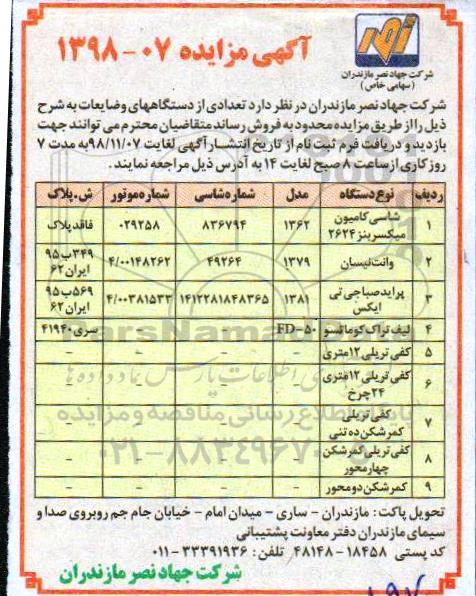 نصر
شرکت جهاد نصر مازندران
(سهامی خاص)
آگهی مزایده ۰۷-۱۳۹۸
شرکت جهاد نصر مازندران در نظر دارد تعدادی از دستگاههای وضایعات به شرح
ذیل را از طریق مزایده محدود به فروش رساند متقاضیان محترم می توانند جهت
بازدید و دریافت فرم ثبت نام از تاریخ انتشار آگهی لغایت ۹۸/۱۱/۰۷ به مدت ۷
روز کاری از ساعت ۸ صبح لغایت ۱۴ به آدرس ذیل مراجعه نمایند.
ردیف نوع دستگاه مدل شماره شاسی شماره موتور ش.پلاک
۱ شاسی کامیون میکسر بنز ۲۶۲۴ ۱۳۶۲ ۸۳۶۷۹۴ ۰۲۹۲۵۸ فاقد پلاک
۲ وانت نیسان ۱۳۷۹ ۴۹۲۶۴ ۴/۰۰۱۴۸۲۶۲ ۳۴۹ب۹۵ ایران۶۲
۳ پراید صبا جی تی ایکس ۱۳۸۱ ۱۴۱۲۲۸۱۸۴۸۳۶۵ ۴/۰۰۳۸۱۵۳۳ ۵۶۹ب۹۵ ایران۶۲
۴ لیف تراک کوماتسو FD-۵۰ – – سری ۴۱۹۴۰
۵ کفی تریلی ۱۲ متری – – – –
۶ کفی تریلی ۱۲ متری ۲۴ چرخ – – – –
۷ کفی تریلی کمرشکن ده تنی – – – –
۸ کفی تریلی کمرشکن چهار محور – – – –
۹ کمرشکن دو محور – – – –
تحویل پاکت: مازندران - ساری - میدان امام - خیابان جام جم روبروی صدا و
سیمای مازندران دفتر معاونت پشتیبانی
کد پستی ۱۸۴۵۸-۴۸۱۴۸ تلفن: ۳۳۳۹۱۹۳۶-۰۱۱
شرکت جهاد نصر مازندران
پایگاه اطلاع رسانی مناقصه و مزایده
۰۲۱-۸۸۳۴۹۶۷۰